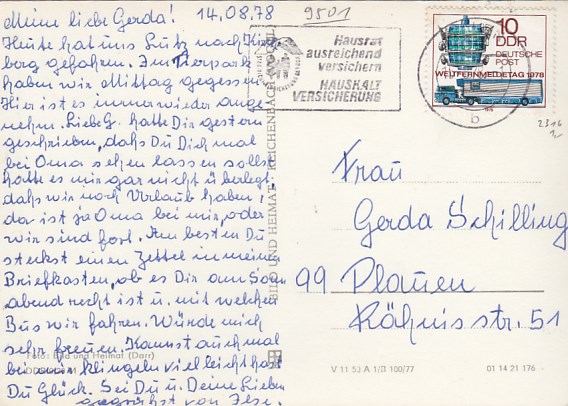 Meine liebe Gerda! 14.08.78
Heute hat uns Lutz nach
berg gefahren. Im Tierpark
haben wir Mittag gegessen
Hier ist es immer wieder ange-
nehm. Liebe G. hatte Dir gestern
geschrieben, dahs Du Dich mal
bei Oma sehen lassen sollst
hatte es mir gar nicht überlegt
dahs wir noch Urlaub haben,
da ist ja Oma bei mir, oder
wir sind fort. Am besten Du
steckst einen Zettel in meinen
Briefkasten, ob es Dir am Sonn
abend recht ist u. mit welchen
Bus wir fahren. Würde mich
sehr freuen. Kannst auch mal
bei mir klingeln vielleicht hast
Du Glück. Sei Du u. Deine Lieben
gegrühst von Ilse.
Foto: Bild und Heimat (Darr)
BILD UND HEIMAT REICHENBACH
9501
Hausrat
ausreichend
versichern
HAUSHALT
VERSICHERUNG
b
10
DDR
DEUTSCHE
POST
WELTFERNMELDETAG 1978
2316
Frau
Gerda Schilling
99 Plauen
Rähnisstr. 51
V 11 50 A 1/B 100/77
01 14 21 176